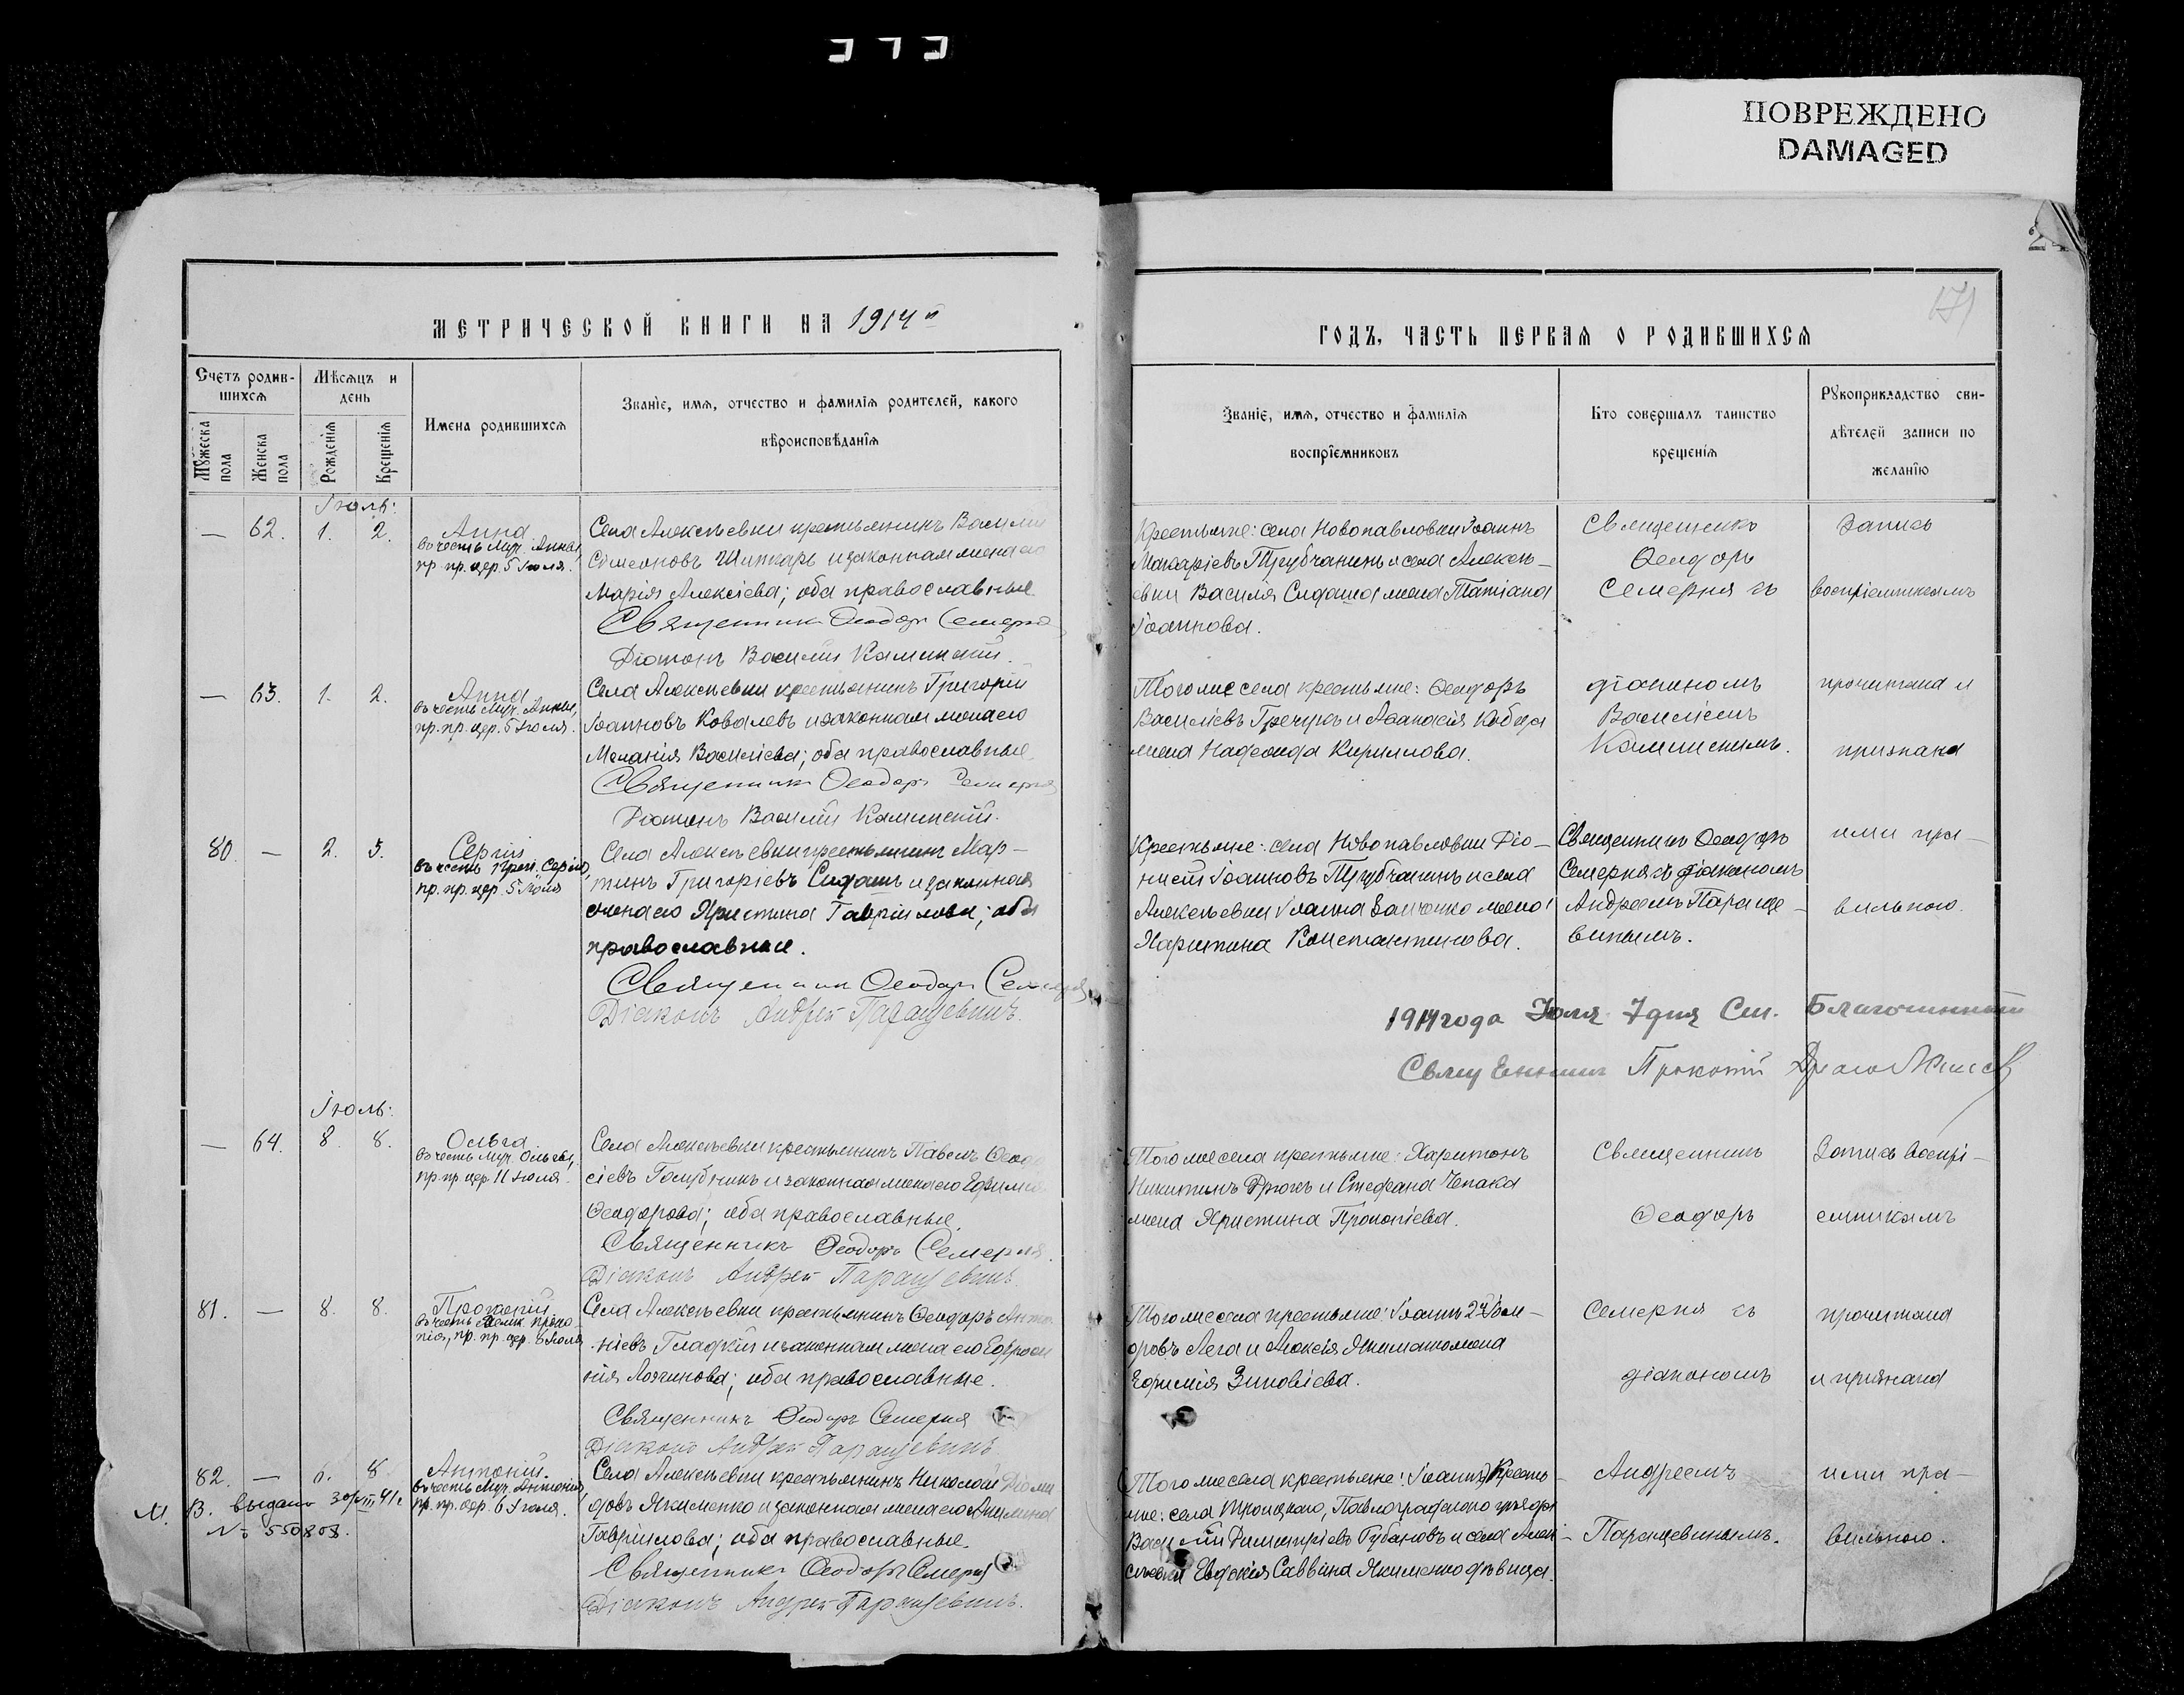 ПОВРЕЖДЕНО
DAMAGED
171
МЕТРИЧЕСКОЙ КНИГИ НА 1914й
ГОДЪ, ЧАСТЬ ПЕРВАЯ О РОДИВШИХСЯ
Счетъ родив-
шихся
Мужеска пола
Женска пола
Мѣсяцъ и
день
Рожденія
Крещенія
Имена родившихся
Званіе, имя, отчество и фамилія родителей, какого
вѣроисповѣданія
Званіе, имя, отчество и фамилія
воспріемниковъ
Кто совершалъ таинство
крещенія
Рукоприкладство сви-
дѣтелей записи по
желанію
Іюль:
— 62. 1. 2.
Анна
въ честь Муч. Анны,
пр. пр. цер. 5 Іюля.
Села Алексѣевки крестьянинъ Василій
Симеоновъ и законная жена его
Марія Алексіева; оба православные.
Священникъ Ѳеодоръ Семерня
Діаконъ Василій Калинскій.
Крестьяне: села Новопавловки Іоаннъ
Макаріевъ Трубчанинъ и села Алексѣ-
евки Василія Сидаша жена Татіана
Іоаннова.
Священникъ
Ѳеодоръ
Семерня съ
Запись
воспріемникамъ
— 63. 1. 2.
Анна
въ честь Муч. Анны,
пр. пр. цер. 5 Іюля.
Села Алексѣевки крестьянинъ Григорій
Іоанновъ Ковалевъ и законная жена его
Меланія Василіева; оба православные.
Священникъ Ѳеодоръ Семерня
Діаконъ Василій Калинскій.
Того же села крестьяне: Ѳеодоръ
Василіевъ Гречукъ и Аѳанасія Кобца
жена Надежда Кириллова.
діакономъ
Василіемъ
Калинскимъ.
прочитана и
признана
80. — 2. 3.
Сергій
въ честь Преп. Сергія,
пр. пр. цер. 5 Іюля
Села Алексѣевки крестьянинъ Мар-
тинъ Григоріевъ Сидашъ и законная
жена его Христина Гавріилова; оба
православные.
Священникъ Ѳеодоръ Семерня
Діаконъ Андрей Паращевинъ.
Крестьяне: села Новопавловки Діо-
нисій Іоанновъ Трубчанинъ и села
Алексѣевки Іоанна Заиченко жена
Харитина Константинова.
Священникъ Ѳеодоръ
Семерня съ діакономъ
Андреемъ Параще-
винымъ.
ими пра-
вильною.
1914 года Іюля 7 дня См. Благочинный
Священникъ Прокопій
Іюль:
— 64. 8. 8.
Ольга
въ честь Муч. Ольги,
пр. пр. цер. 11 Іюля.
Села Алексѣевки крестьянинъ Павелъ Ѳеодо
сіевъ Голубникъ и законная жена его Ефимія
Ѳеодорова; оба православные.
Священникъ Ѳеодоръ Семерня.
Діаконъ Андрей Паращевинъ.
Того же села крестьяне: Харитонъ
Никитинъ и Стефана Чепака
жена Христина Прокопіева.
Священникъ
Ѳеодоръ
Запись воспрі-
емникамъ
81. — 8. 8.
Прокопій
въ честь Велик. Проко-
пія, пр. пр. цер. 8 Іюля
Села Алексѣевки крестьянинъ Ѳеодоръ Анто
ніевъ Гладкій и законная жена его Ефроси
нія Логгинова; оба православные.
Священникъ Ѳеодоръ Семерня
Діаконъ Андрей Паращевинъ
Того же села крестьяне: Іоаннъ 2й Ѳео-
оровъ Лега и Алексія Якименко жена
Ефимія Зиновіева.
Семерня съ
діакономъ
прочитана
и признана
82. — 6. 8
Антоній.
въ честь Муч. Антонія,
пр. пр. цер. 6 Іюля.
М. В. выдано 30/VIII 41 г.
№ 550808.
Села Алексѣевки крестьянинъ Николай Діоми
довъ Якименко и законная жена его Акилина
Гавріилова; оба православные.
Священникъ Ѳеодоръ Семерня
Діаконъ Андрей Паращевинъ.
Того же села крестьяне: Іоаннъ) Кресть-
яне: села Троицкаго, Павлоградскаго уѣзда
Василій Димитріевъ Губановъ и села Алек-
сѣевки Евдокія Саввина Якименко дѣвица.
Андреемъ
Паращевинымъ.
ими пра-
вильною.